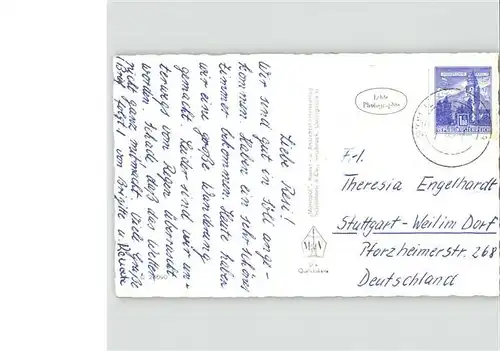 Liebe Resi!
Wir sind gut in Söll ange-
kommen. Haben ein sehr schönes
Zimmer bekommen. Heute haben
wir eine große Wanderung
gemacht. Leider sind wir un-
terwegs vom Regen überrascht
worden. Schade daß das Wetter
nicht ganz mitmacht. Viele Grüße
(Brief folgt!) von Brigitte u.
Echte
Photographie
Frl.
Theresia Engelhardt
Stuttgart-Weilimdorf
Pforzheimerstr. 268
Deutschland